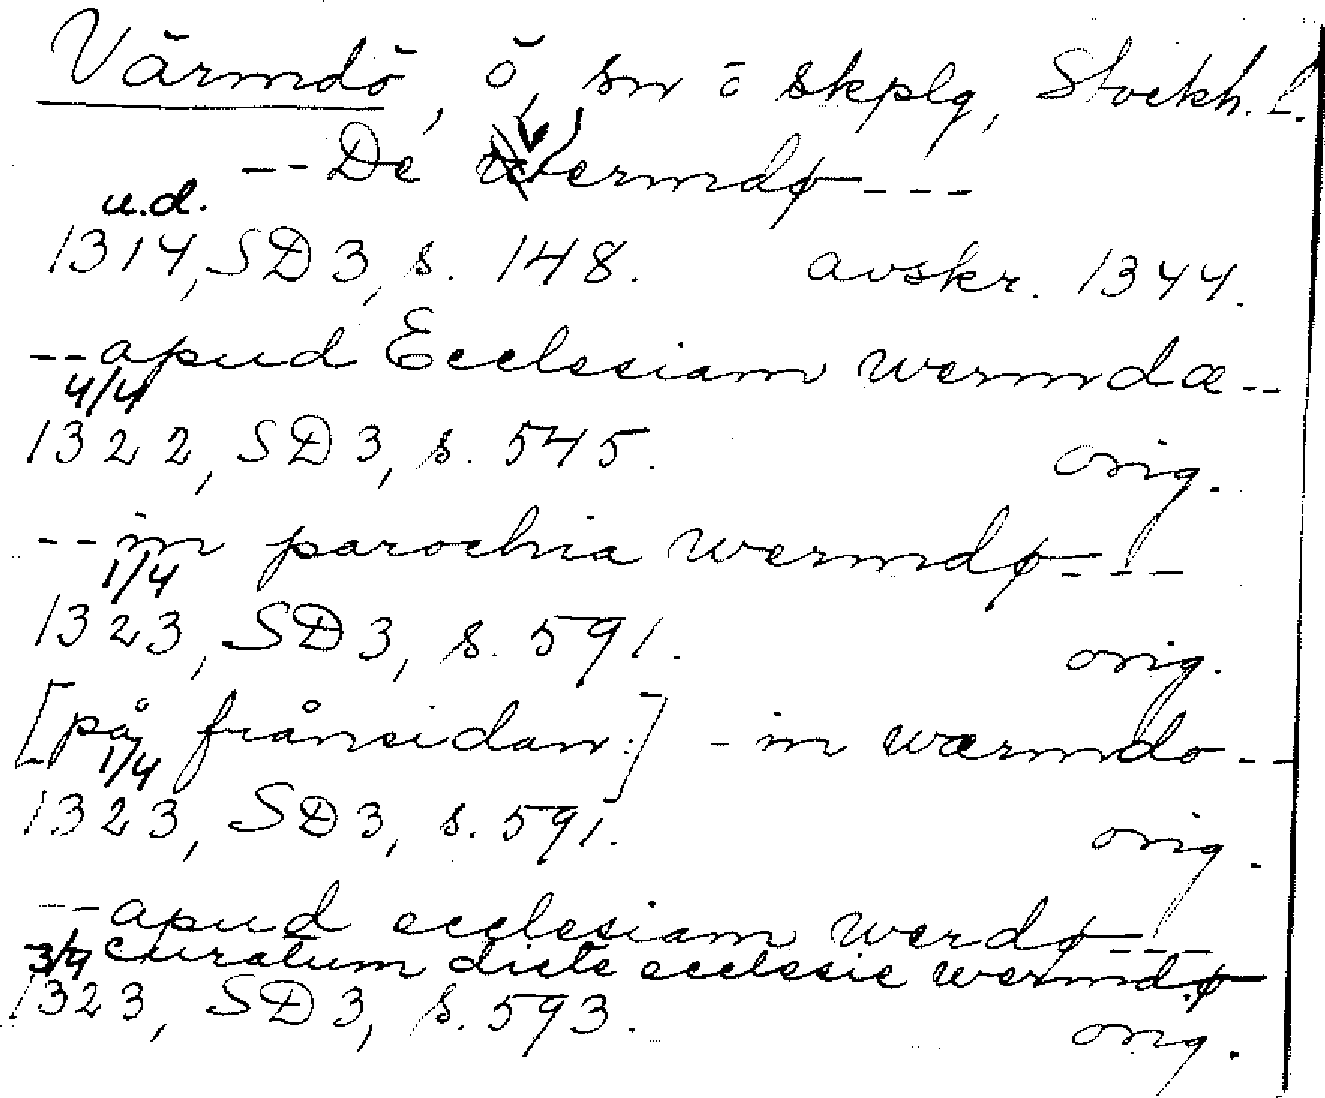 Värmdö, ö, sn o skplg, Stockh. l.
-- De wermdø ---
u.d.
1314, SD 3, s. 148. avskr. 1344.
-- apud Ecclesiam wermdæ --
4/4
1322, SD 3, s. 545. orig.
-- in parochia wermdø ---
1/4
1323, SD 3, s. 591. orig.
[på frånsidan:] - in wærmdo --
1/4
1323, SD 3, s. 591. orig.
-- apud ecclesiam werdø ---
- curatum dicte ecclesie wermdø
3/4
1323, SD 3, s. 593. orig.